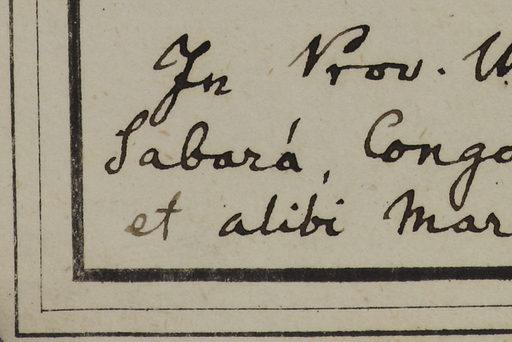 In Prov.
Sabará, Congo
et alibi Mar